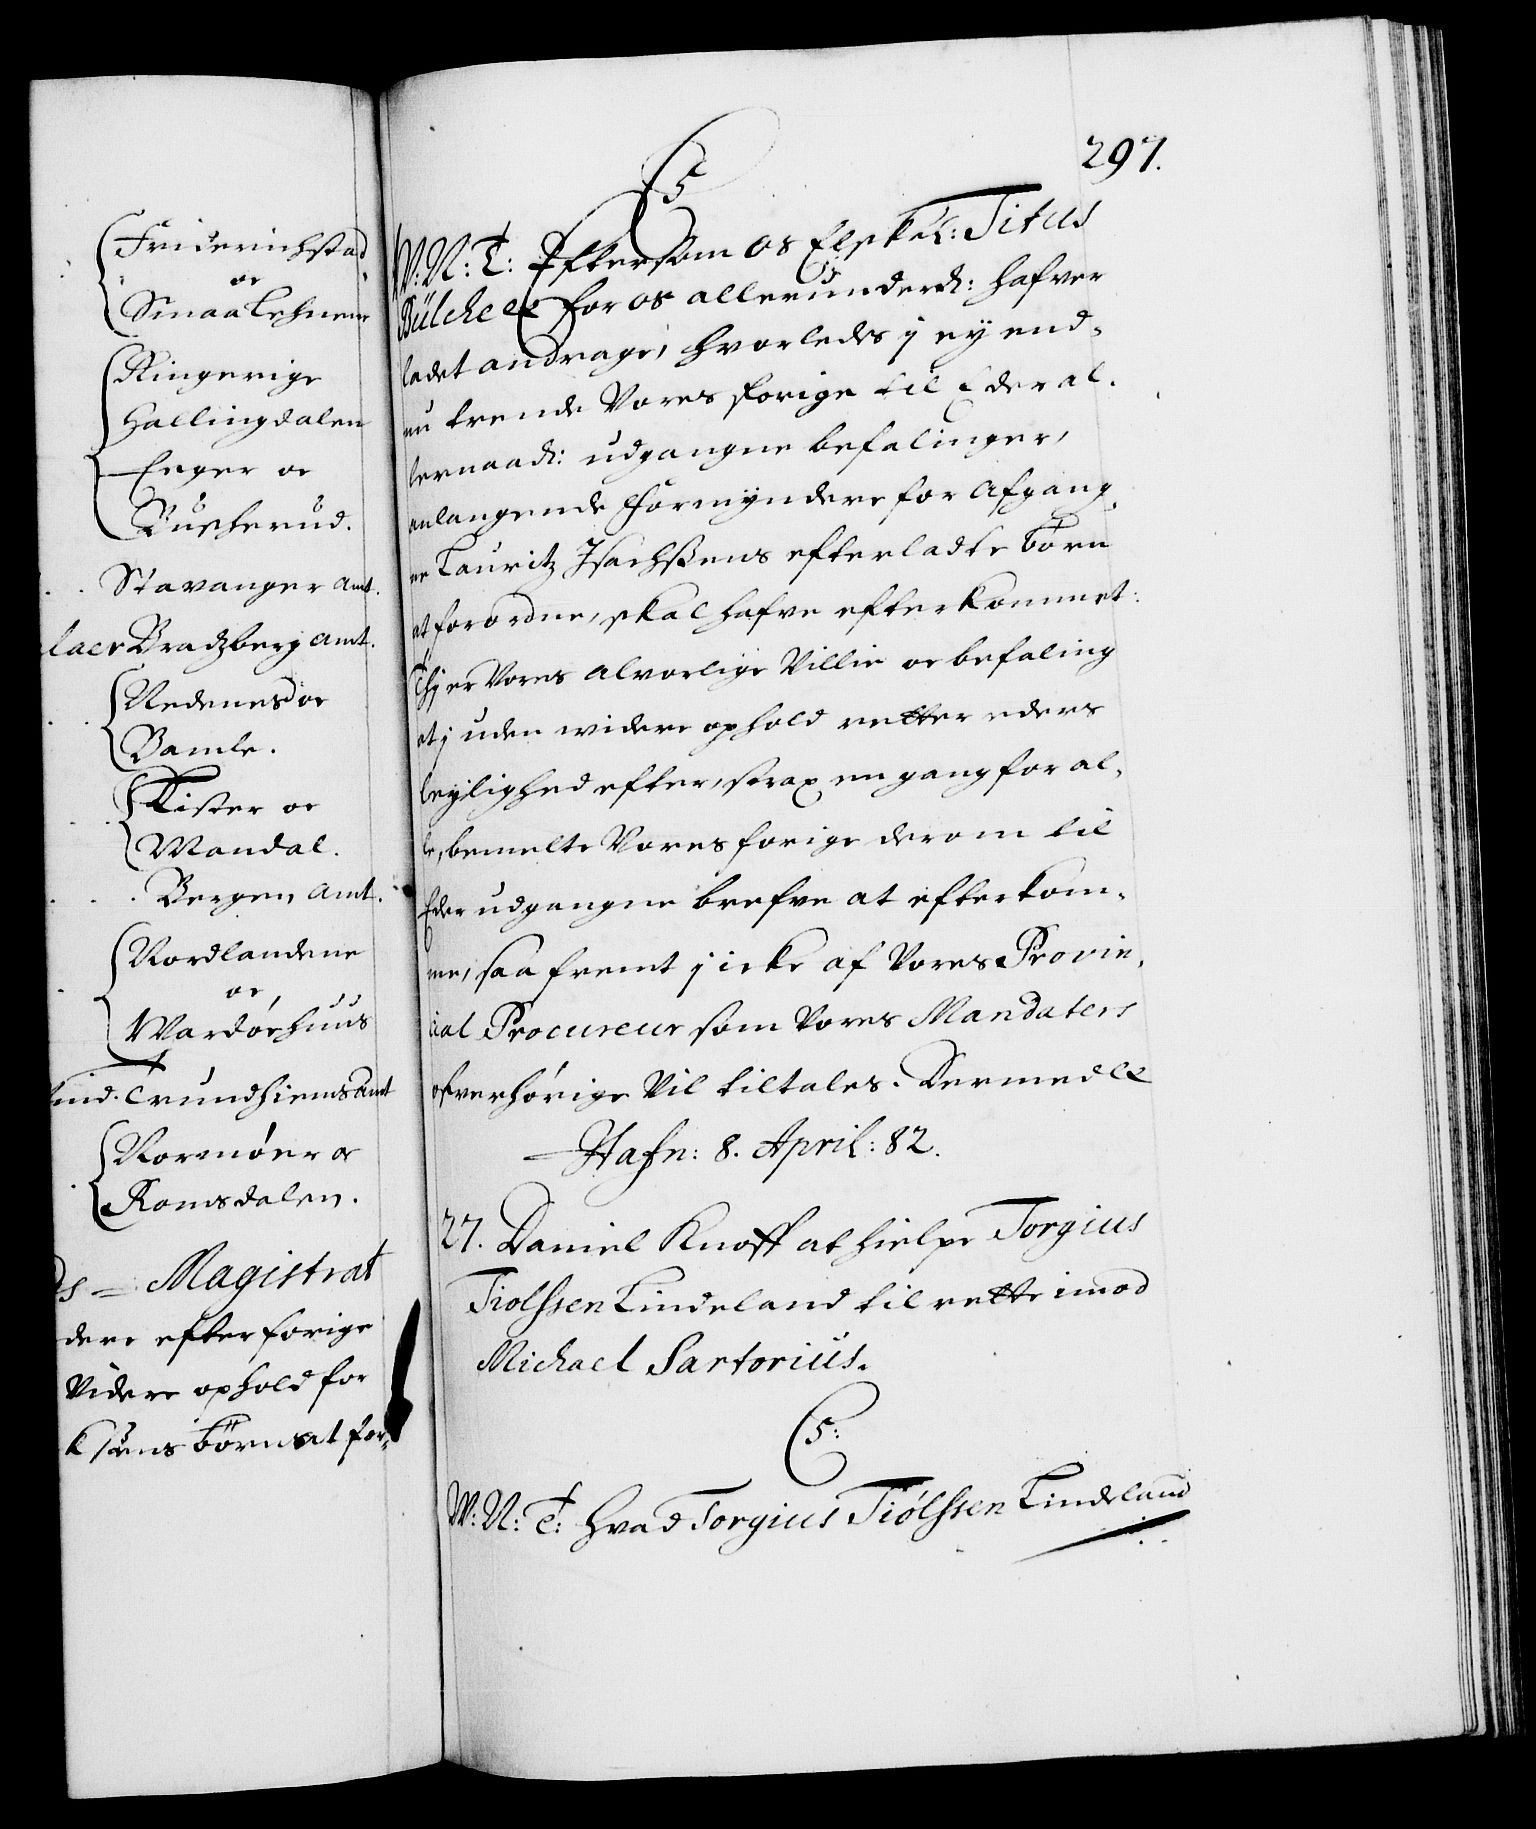 Friderichstad
oc
Smaalehnene
Ringerige
Hallingdalen
Eager oc
Buskerud.
Stavanger Amt.
laer Bradsberg Amt.
Nedenes oc
Bamle.
Lister oc
Mandal.
Bergen Amt.
Nordlandene
oc
Wardøehuus
Trundhiems Amt
Normøer oc
Romsdalen.
Magistrat
dere efter forige
Videre ophold for
børn at for-
297.
C5
W: N: T: Eftersom os Elskel: Titus
Bülche for os allerunderd: hafver
ladet andrage, hvorledes j ey end-
nu trende Vores forige til Eder al-
lernaad: udgangne befalinger,
anlangende Formyndere for Afgang-
ne Lauritz Isachsens efterladte børn
at forordne, skal hafve efterkommet:
Thj er Vores alvorlige Villie oc befaling
at j uden widere ophold retter eders
leylighed efter, strax en gang for al-
le, bemelte Vores forige derom til
Eder udgangne brefve at efterkom-
me, saa fremt j icke af Vores Provin-
cial Procureur som Vores Mandaters
ofverhørige Vil tiltales. Dermed &
Hafn: 8. April: 82.
27. Daniel Knoff at hielpe Torgius
Tiolssen Lindeland til rette imod
Michael Sartorius.
C5:
W: N: T: Hvad Torgius Tiólssen Lindeland